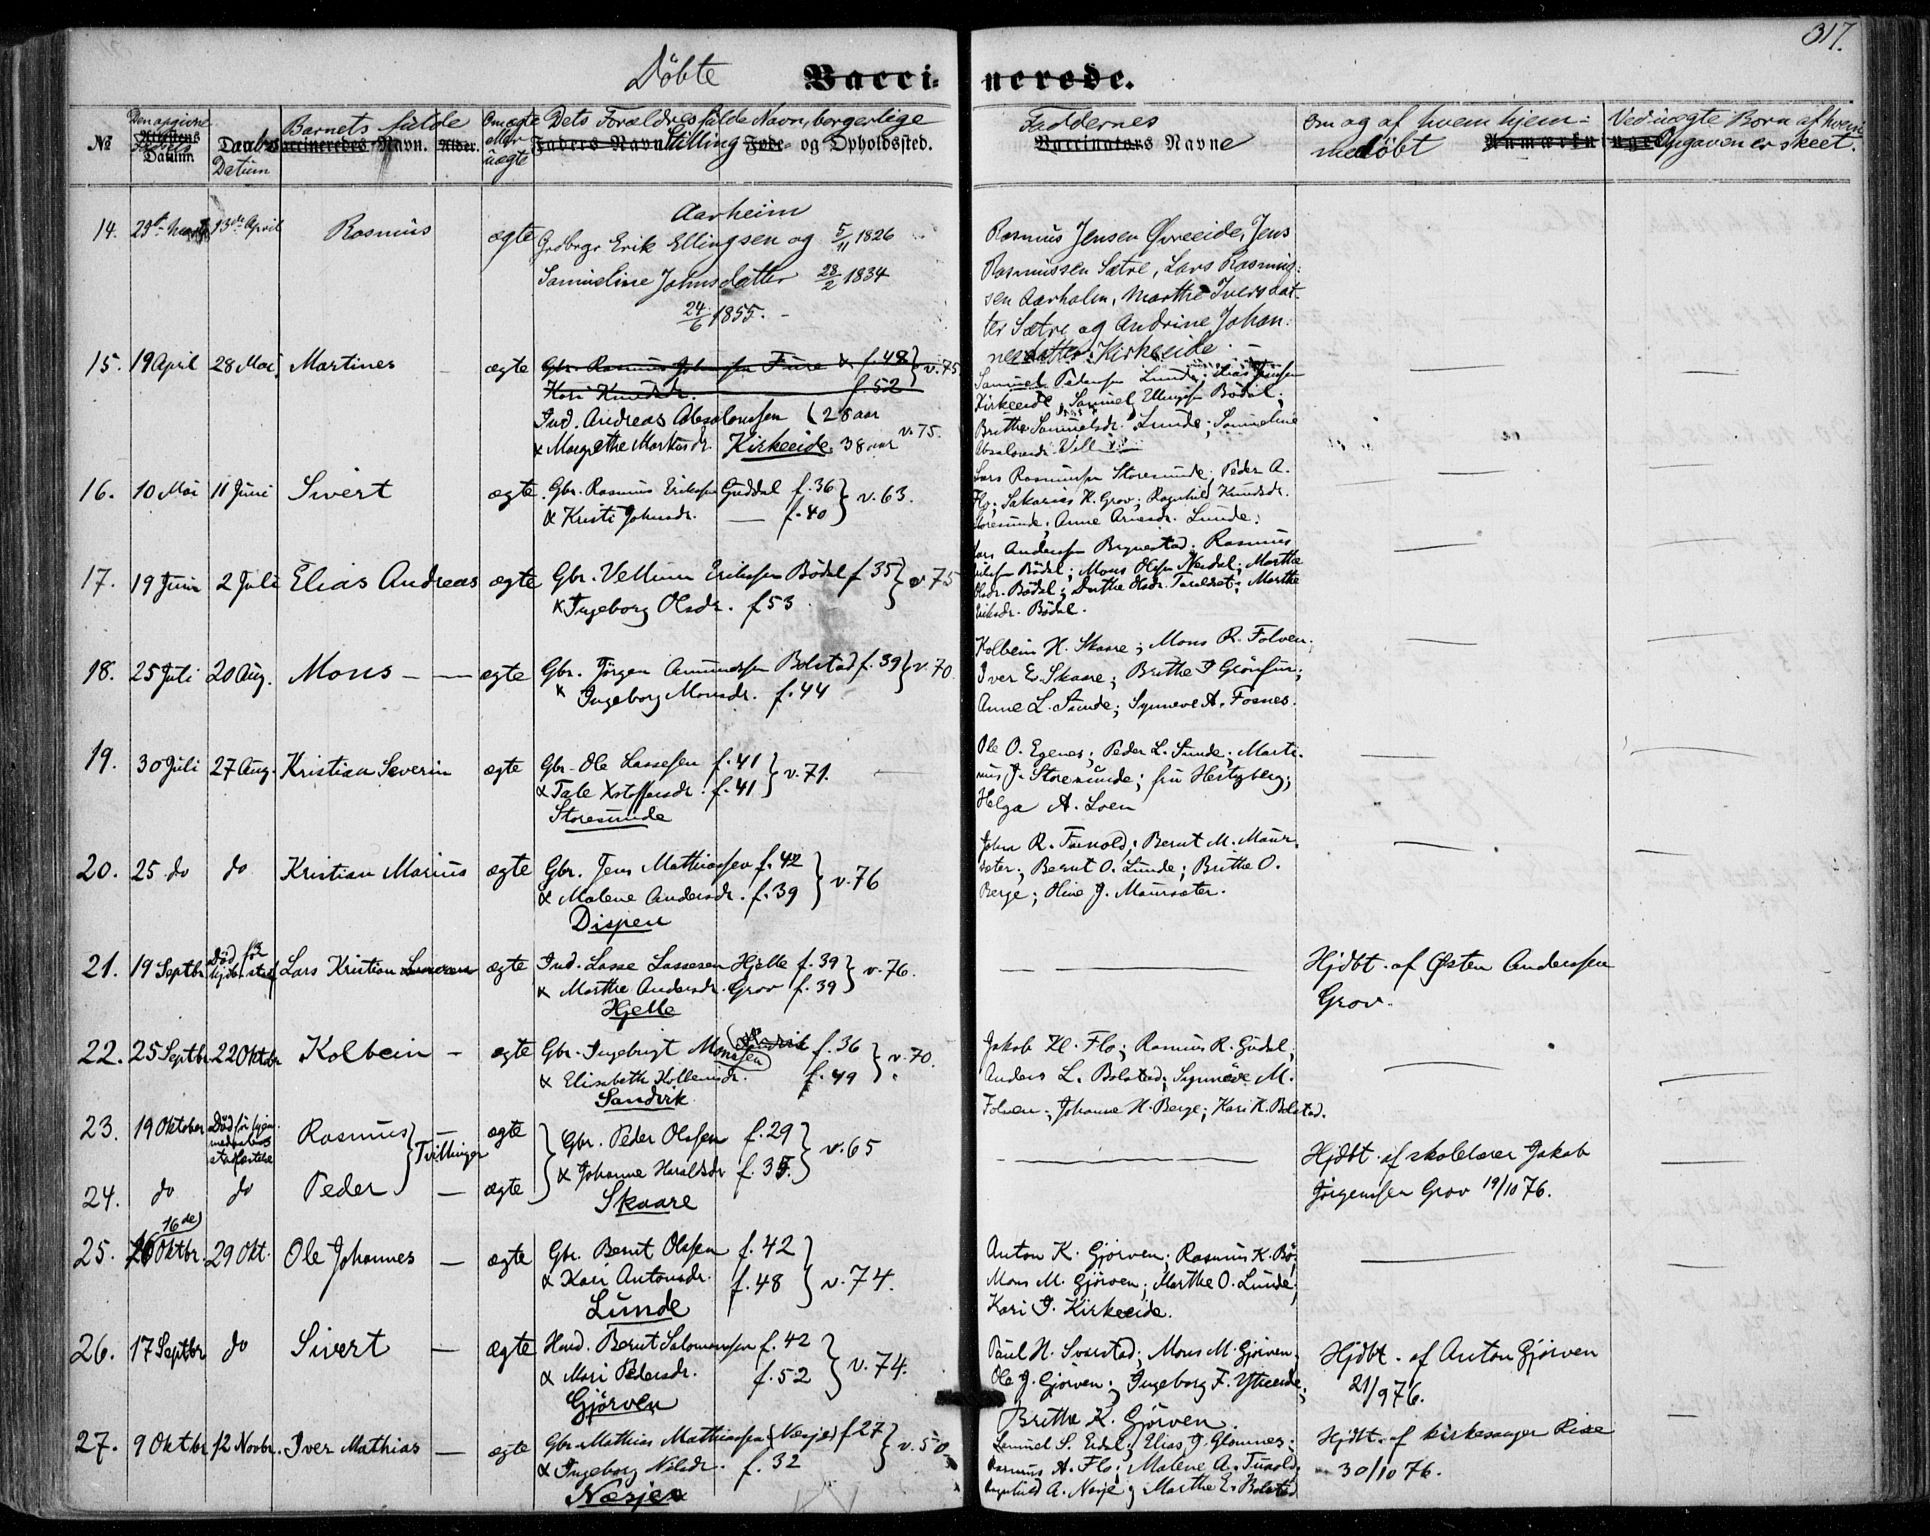 317.
Döbte Vacci- nerede.
№ Den opgivne Attestens Fødsels Datum. Daabs Datum Barnets fulde Vaccineredes Navn. Alder. Om ægte eller uægte Dets Forældres fulde Navn, borgerlige Stilling Faders Navn Føde- og Opholdssted.
Faddernes Vaccinators Navne Om og af hvem hjem- medöbt Anmærkninger Ved uægte Børn af hvem Opgaven er skeet.
14. 29de Marts 13de April Rasmus ægte Aarheim
Grdbrgr Erik Ellingsen og 5/11 1826
Samueline Johnsdatter 28/2 1834
24/6 1855.
Rasmus Jensen Øvreeide, Jens
Rasmussen Sætre, Lars Rasmus-
sen Aarholm, Marthe Iversdat-
ter Sætre og Andrine Johan-
nesdatter Kirkeeide.
15. 19 April 28 Mai Martines ægte Gbr. Rasmus Johnsen Fure & f. 48 } v. 75
Kari Knudsdr. f. 52
Ind. Andreas Absalonsen (28 aar
& Margrethe Markusdr. Kirkeeide 38 aar v. 75.
Samuel Pedersen Lunde; Elias Jensen
Kirkeeide, Samuel Ellingsen Bødal;
Brithe Samuelsdr. Lunde; Samueline
Absalonsdr.
16. 10 Mai 11 Juni Sivert ægte Gbr. Rasmus Eriksen Guddal f. 36 } v. 63.
& Kristi Johnsdr. — f. 40
Lars Rasmussen Storesunde; Peder A.
Flo; Sakarias H. Grov; Ragnhild Knudsdr.
Storesunde; Anne Arnesdr. Lunde;
17. 19 Juni 2 Juli Elias Andreas ægte Gbr. Vellum Eriksen Bödal f. 35 } v. 75
& Ingeborg Olsdr. f. 53
Lars Andersen Brynestad; Rasmus
Eriksen Bødal; Mons Olsen Nesdal; Marthe
Olsdr. Bödal; Dorthe Olsdr. ; Marthe
Eriksdr. Bödal.
18. 25 Juli 20 Aug. Mons — — ægte Gbr. Jörgen Amundsen Bolstad f. 39 } v. 70.
& Ingeborg Monsdr. f. 44
Kolbein H. Skaare; Mons R. Folven;
Iver E. Skaare; Brithe J. ;
Anne L. Sunde; Synneve A. Fosnes.
19. 30 Juli 27 Aug. Kristian Severin ægte Gbr. Ole Lassesen f. 41 } v. 71.
& Tale Xstoffersdr. f. 41
Storesunde
Ole O. Egenes; Peder L. Sunde; Marti-
nus J. Storesunde; fru Hertzberg;
Helga A. Loen
20. 25 do do Kristian Marius ægte Gbr. Jens Mathiassen f. 42 } v. 76
& Malene Andersdr. f. 39
Dispen
John R. Tunold; Bernt M. Maur-
sæter; Bernt O. Lunde; Brithe O.
Berge; Oline J. Maursæter.
21. 19 Septbr. Död før hjdb. stadf. Lars Kristian ægte Ind. Lasse Lassesen Hjelle f. 39 } v. 76.
& Marthe Andersdr. Grov f. 39
Hjelle
Hjdbt. af Østen Andersen
Grov.
22. 25 Septbr. 22 Oktbr Kolbein — ægte Gbr. Ingebrigt Monssen f. 36 } v. 70.
& Elisabeth Kolbeinsdr. f. 49
Sandvik
Jakob Kl. Flo; Rasmus R. Gudal;
Anders L. Bolstad; Synnöve M.
Folven; Johanne H. Berge; Kari K. Bolstad.
23. 19 Oktober Död før hjemmedaabens stadfæstelse Rasmus } Tvillinger — ægte Gbr. Peder Olssen f. 29 } v. 65
& Johanne Haraldsdr f. 35.
24. do do Peder — ægte Skaare
Hjdbt. af skolelærer Jakob
Jörgensen Grov 19/10 76.
25. 16de 26 Oktbr. 29 Okt. Ole Johannes — ægte Gbr. Bernt Olssen f. 42
& Kari Antonsdr. f. 48 } v. 74.
Lunde
Anton K. Gjörven; Rasmus K. Bö;
Mons M. Gjörven; Marthe O. Lunde;
Kari J. Kirkeeide.
26. 17 Septbr do Sivert — ægte Husd. Bernt Salomonsen f. 42
& Mari Pedersdr. f. 52 } v. 74.
Gjörven
Paul H. Svarstad; Mons M. Gjörven;
Ole J. Gjörven; Ingeborg F. Ytreeide;
Brithe K. Gjörven.
Hjdbt. af Anton Gjörven
21/9 76.
27. 9 Oktbr 12 Novbr. Iver Mathias — ægte Gbr. Mathias Mathiassen (Nesje) f 27 } v. 50
& Ingeborg Nilsdr. f. 32
Næsje
Samuel S. Eidel; Elias J. Glomnes;
Rasmus A. Flo; Malene A. Tunold;
Ragnhild A. Nesje; Marthe E. Bolstad
Hjdt. af kirkesanger Rise
30/10 76.